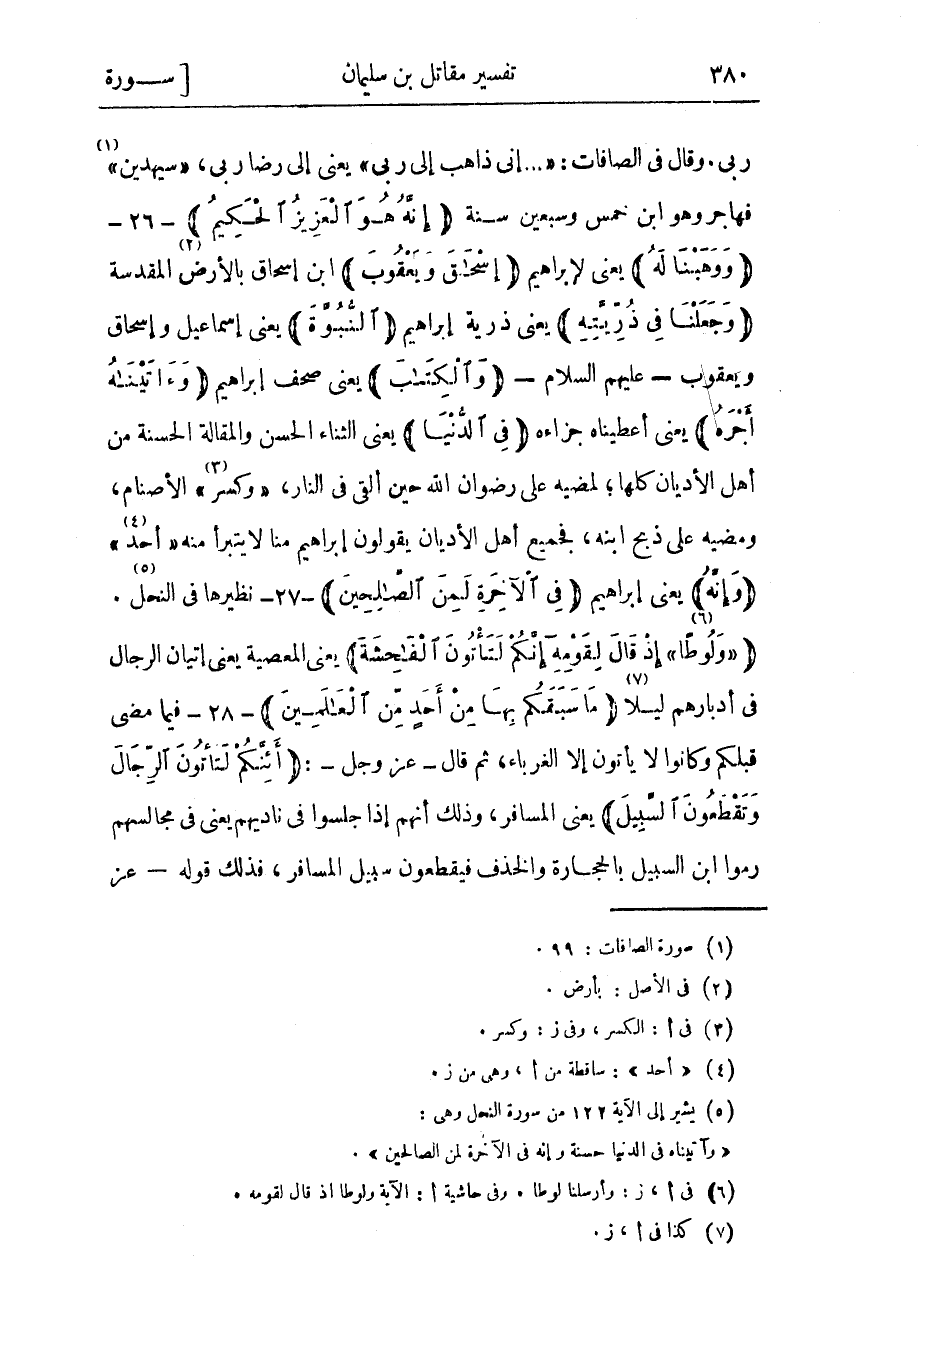 ٣٨٠ تفسير مقاتل بن سليمان [ ســـورة
ربى. وقال فى الصافات: «... إنى ذاهب إلى ربى» يعنى إلى رضا ربى، «سيهدين» (١)
فهاجر وهو ابن خمس وسبعين سـنة ﴿ إِنَّهُ هُـوَ ٱلْعَزِيزُ ٱلْحَكِيمُ ﴾ - ٢٦ -
﴿ وَوَهَبْنَا لَهُ ﴾ يعنى لإبراهيم ﴿ إِسْحَـٰقَ وَيَعْقُوبَ ﴾ ابن إسحاق بالأرض (٢) المقدسة
﴿ وَجَعَلْنَـا فِى ذُرِّيَّتِهِ ﴾ يعنى ذرية إبراهيم ﴿ ٱلنُّبُوَّةَ ﴾ يعنى إسماعيل وإسحاق
ويعقوب — عليهم السلام — ﴿ وَٱلْكِتَـٰبَ ﴾ يعنى صحف إبراهيم ﴿ وَءَاتَيْنَـٰهُ
أَجْرَهُ ﴾ يعنى أعطيناه جزاءه ﴿ فِى ٱلدُّنْيَـا ﴾ يعنى الثناء الحسن والمقالة الحسنة من
أهل الأديان كلها؛ لمضيه على رضوان الله حين ألقى فى النار، «وكسر» (٣) الأصنام،
ومضيه على ذبح ابنه، فجميع أهل الأديان يقولون إبراهيم منا لا يتبرأ منه «أحد» (٤)
﴿ وَإِنَّهُ ﴾ يعنى إبراهيم ﴿ فِى ٱلْآخِرَةِ لَمِنَ ٱلصَّـٰلِحِينَ ﴾ - ٢٧ - نظيرها فى النحل (٥).
﴿ «وَلُوطًا» (٦) إِذْ قَالَ لِقَوْمِهِۦٓ إِنَّكُمْ لَتَأْتُونَ ٱلْفَـٰحِشَةَ ﴾ يعنى المعصية يعنى إتيان الرجال
فى أدبارهم ليـلا (٧) ﴿ مَا سَبَقَكُم بِهَـا مِنْ أَحَدٍ مِّن ٱلْعَـٰلَمِـينَ ﴾ - ٢٨ - فيما مضى
قبلكم وكانوا لا يأتون إلا الغرباء، ثم قال - عز وجل - : ﴿ أَئِنَّكُمْ لَتَأْتُونَ ٱلرِّجَالَ
وَتَقْطَعُونَ ٱلسَّبِيلَ ﴾ يعنى المسافر، وذلك أنهم إذا جلسوا فى ناديهم يعنى فى مجالسهم
رموا ابن السبيل بالحجـارة والخذف فيقطعون سبيل المسافر، فذلك قوله — عز
(١) سورة الصافات : ٩٩ .
(٢) فى الأصل : بأرض .
(٣) فى أ : الكسر، وفى ز : وكسر.
(٤) « أحد » : ساقطة من أ ، وهى من ز.
(٥) يشير إلى الآية ١٢٢ من سورة النحل وهى :
« وآتيناه فى الدنيا حسنة وإنه فى الآخرة لمن الصالحين » .
(٦) فى أ ، ز : وأرسلنا لوطا . وفى حاشية أ : الآية ولوطا اذ قال لقومه .
(٧) كذا فى أ ، ز.